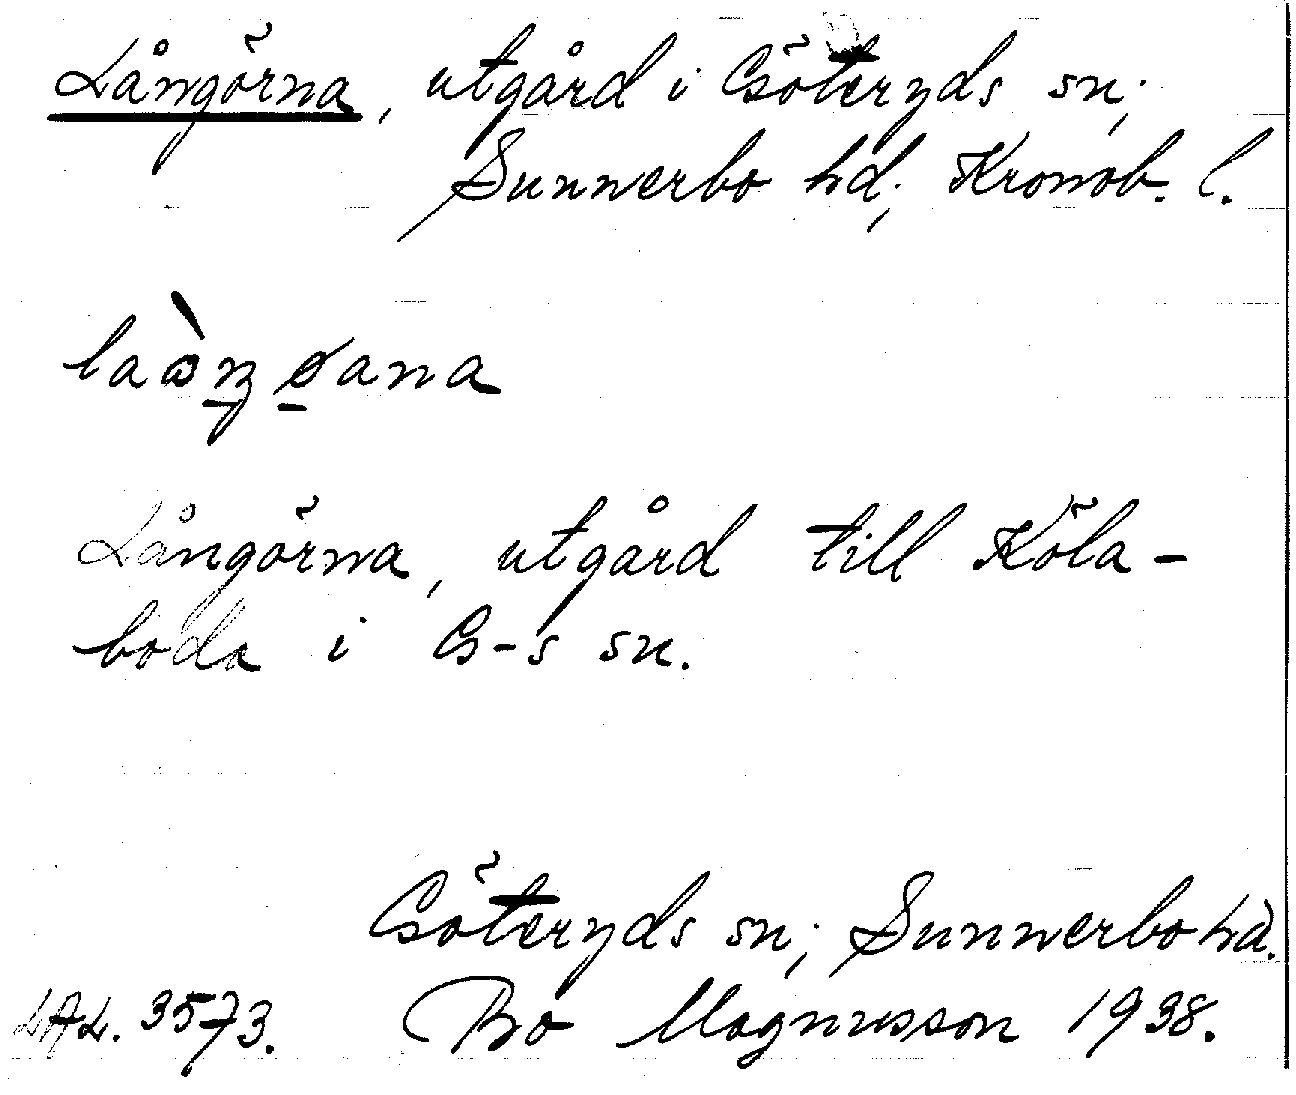 Långörna, utgård i Göteryds sn;
Sunnerbo hd; Kronob. l.
Långörna, utgård till Köla-
boda i G-s sn.
Göteryds sn; Sunnerbo hd.
LAL. 3573. Bo Magnusson 1938.